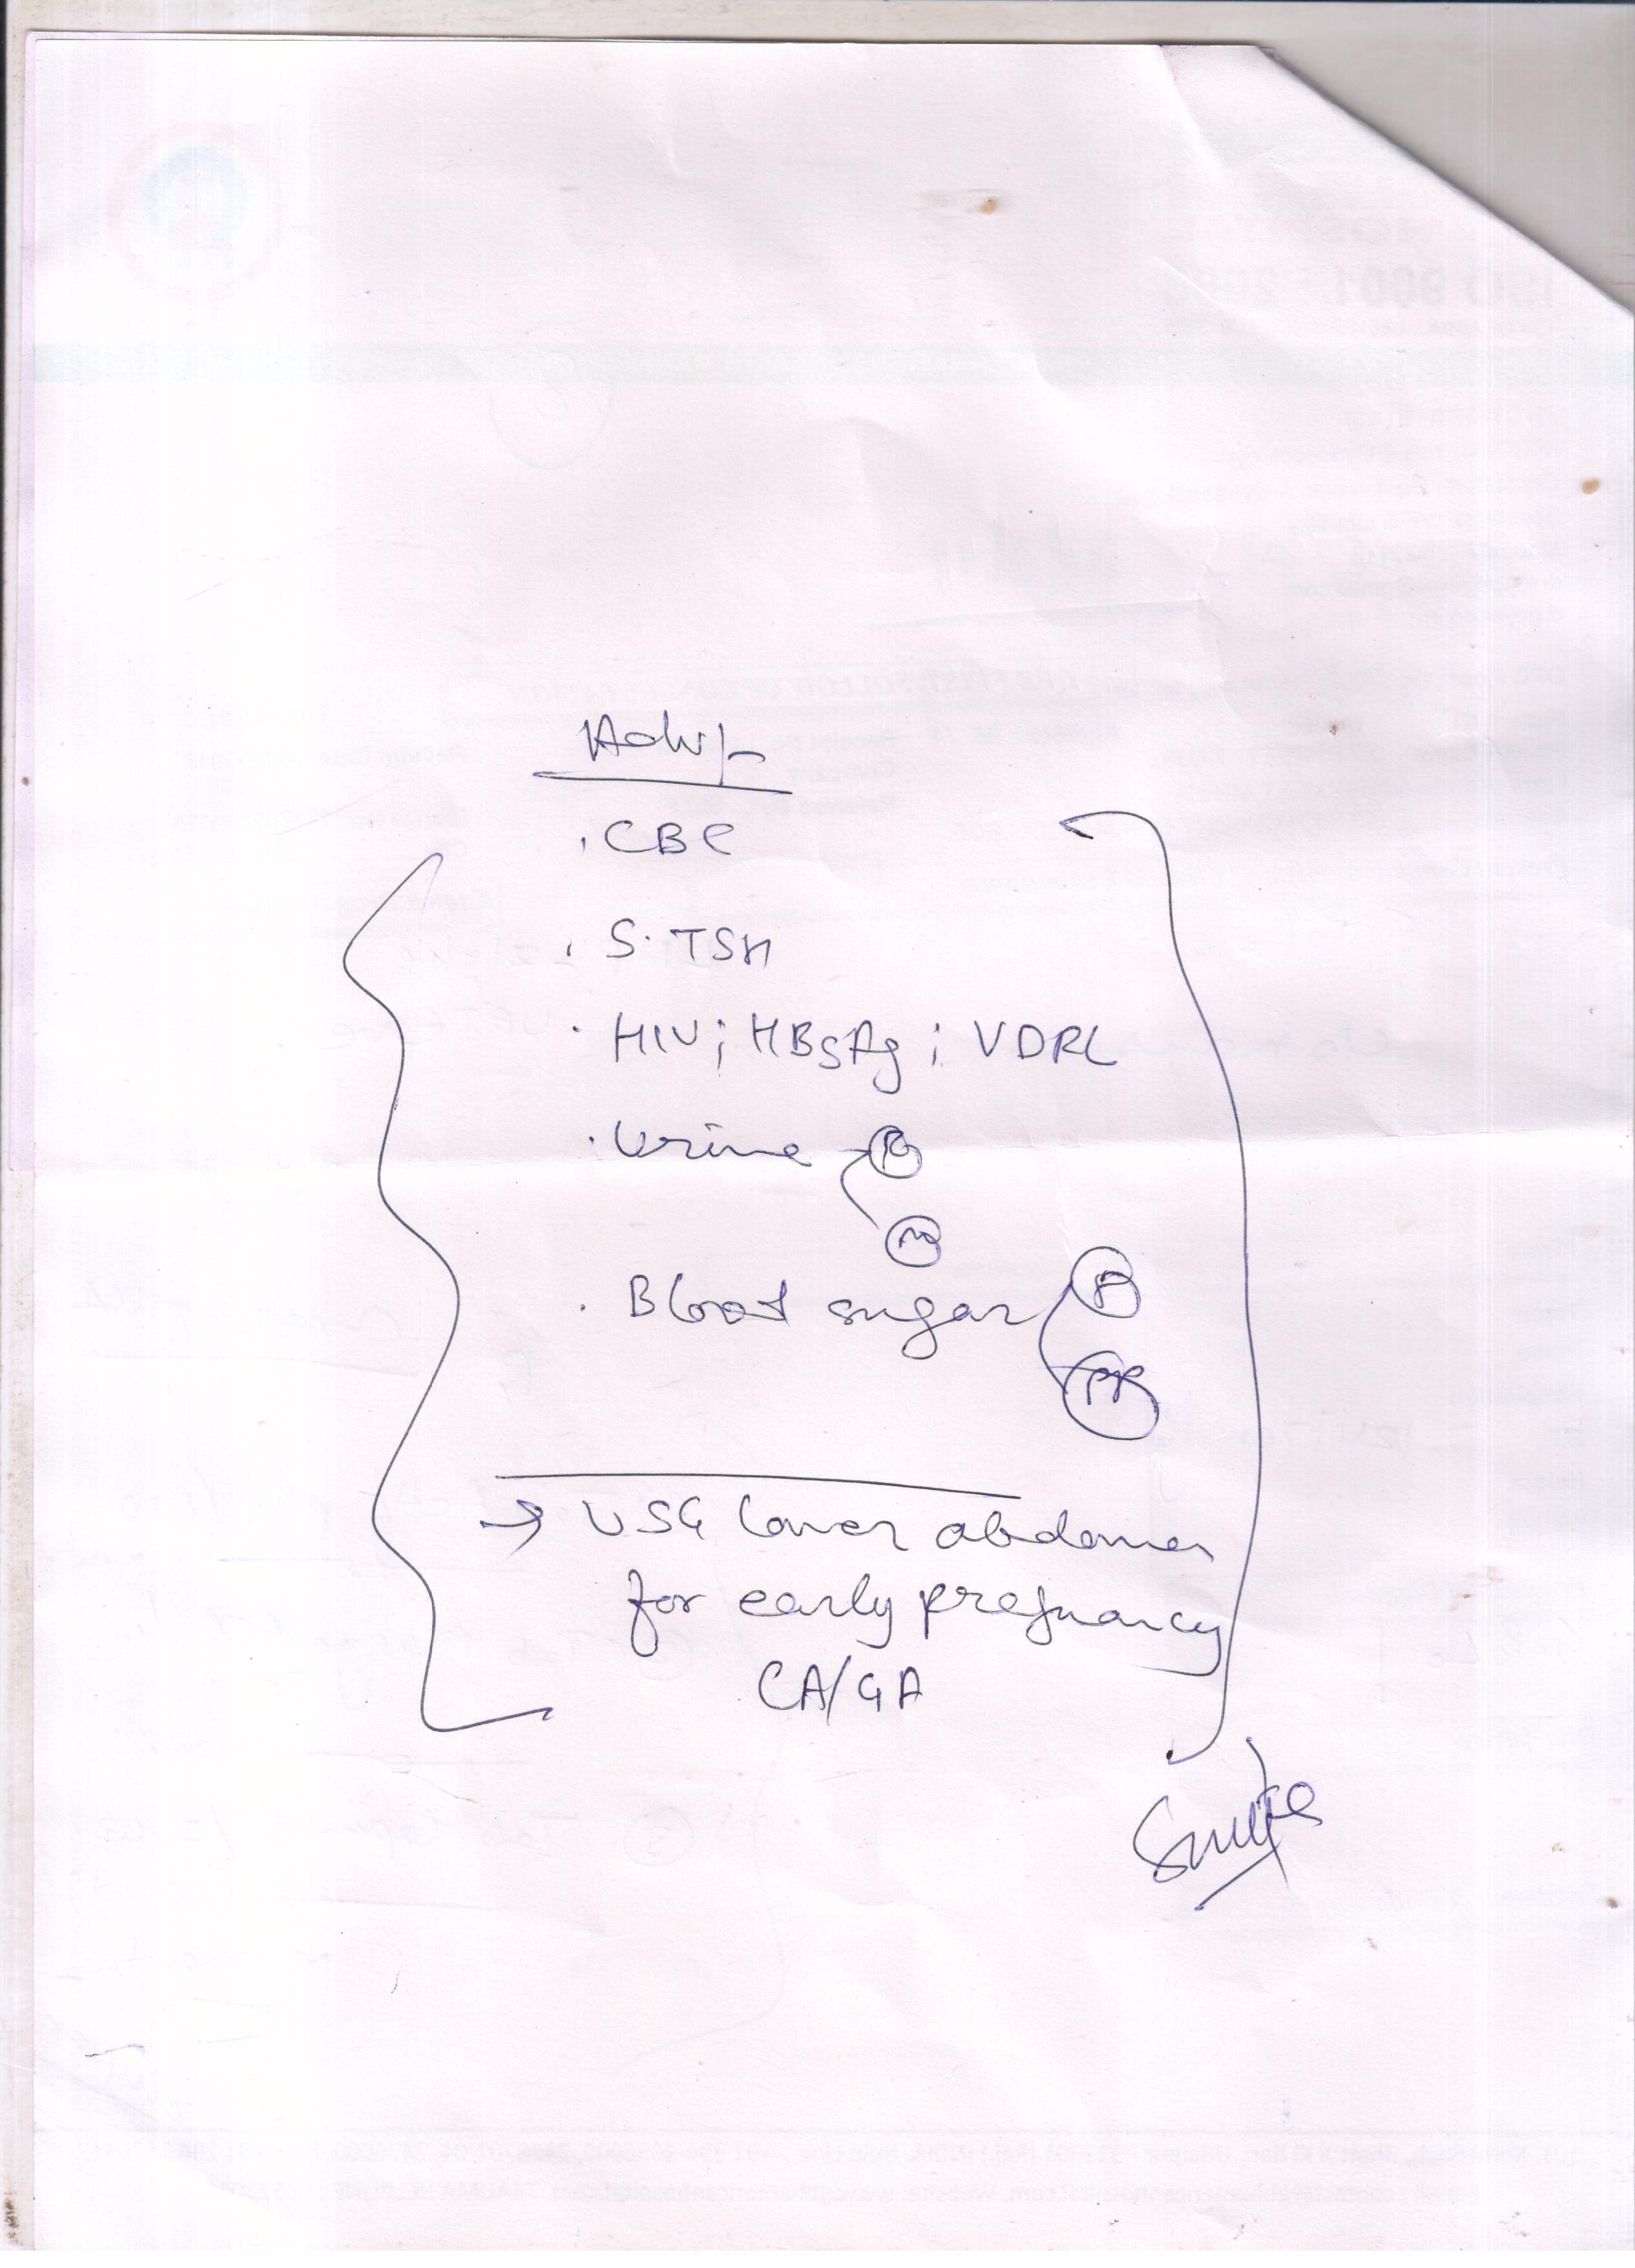 Adv:-
. CBC
. S. TSH
. HIV; HBsAg; VDRL
. Urine R
M
. Blood sugar F
PP
→ USG lower abdomen
for early pregnancy
CA/GA